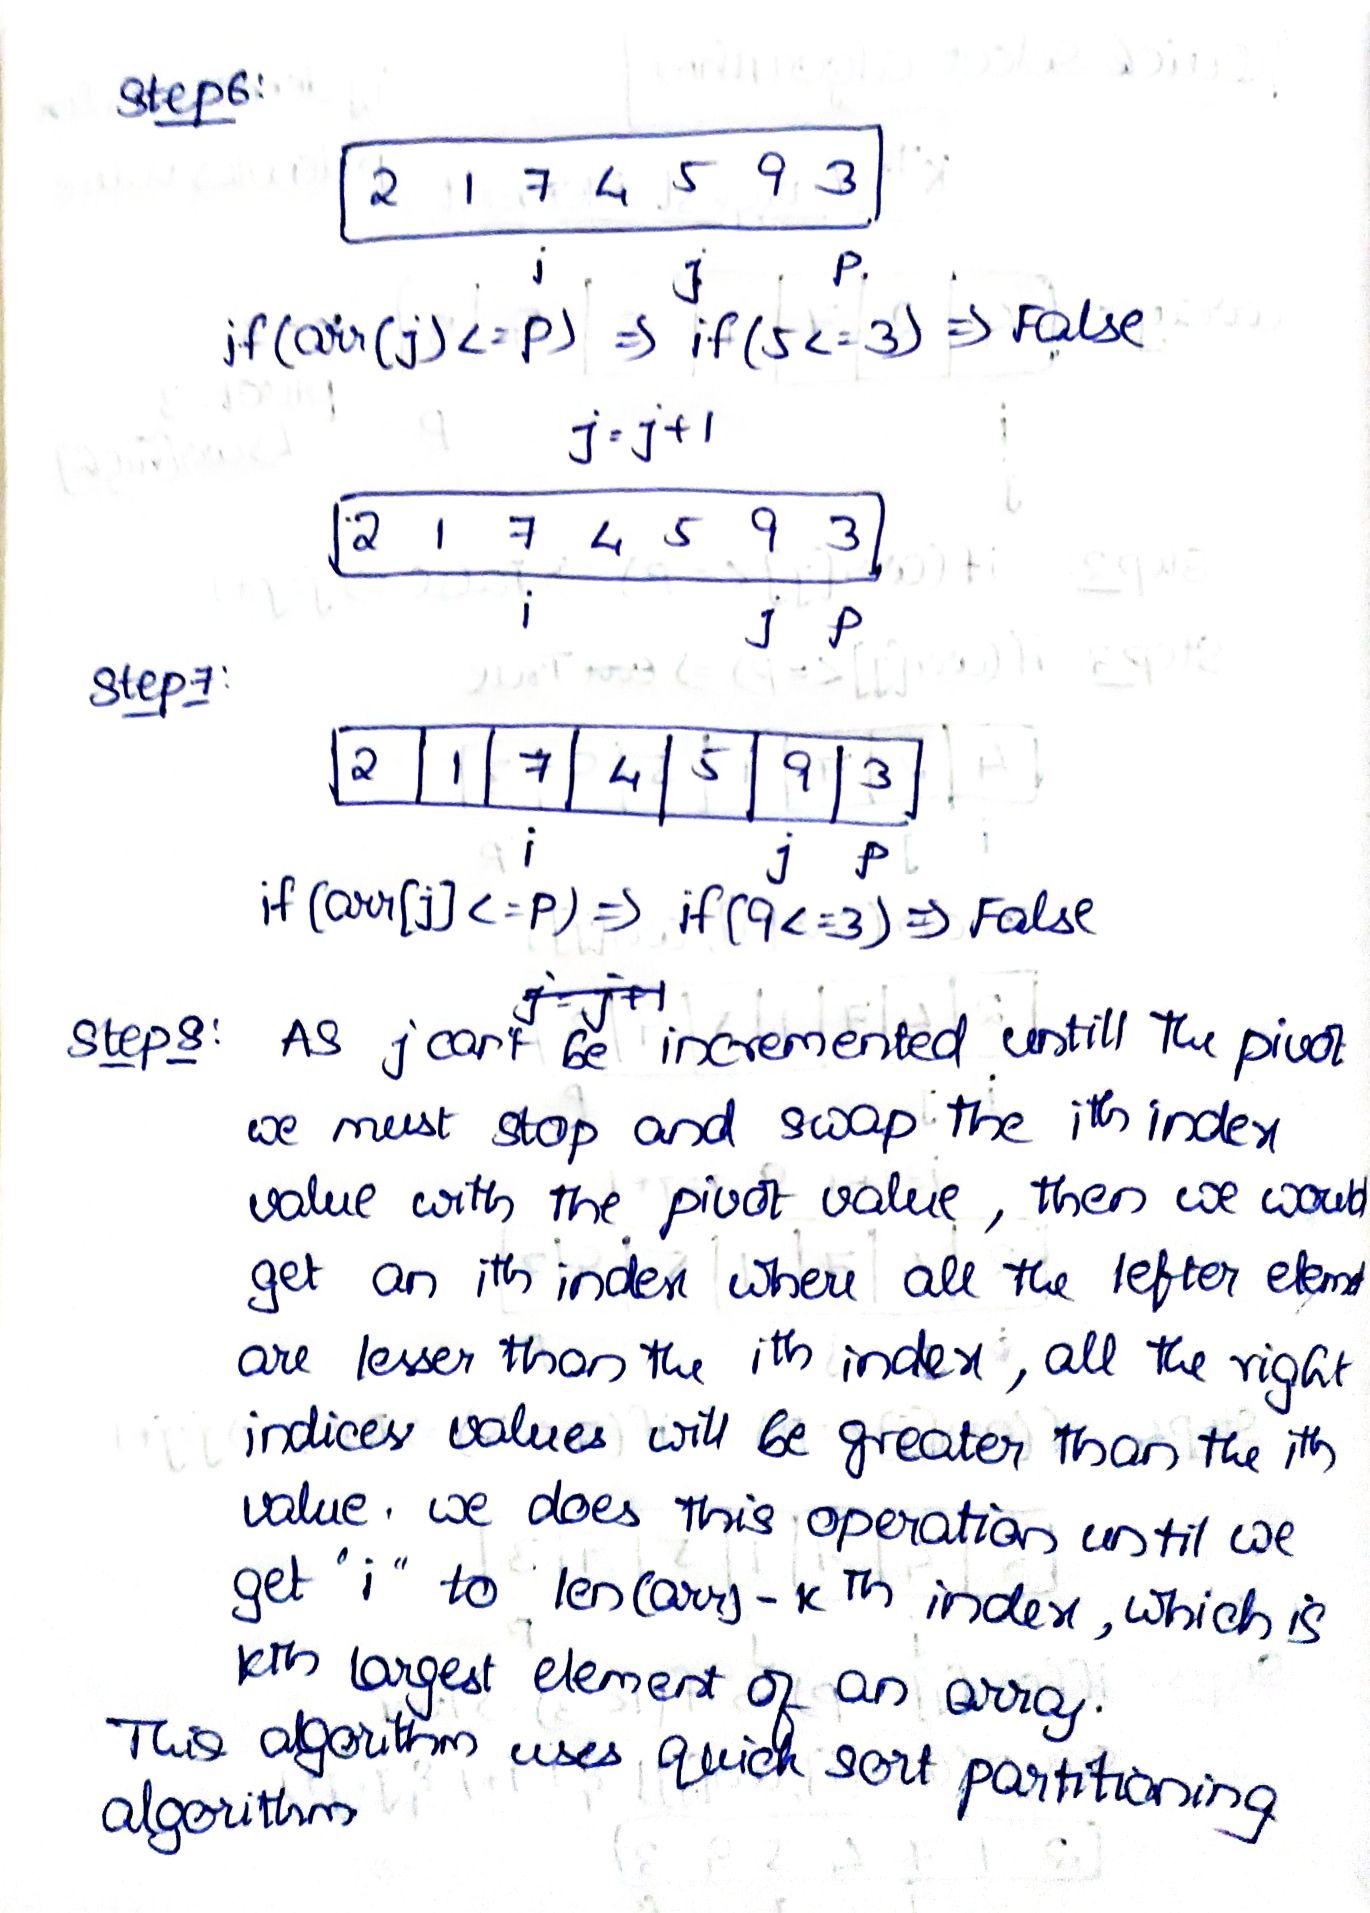 Step6:
2 1 7 4 5 9 3
i j p.
if(arr(j)<=P) => if(5<=3) => False
j=j+1
2 1 7 4 5 9 3
i j p
Step7:
2 1 7 4 5 9 3
i j p
if(arr[j]<=P) => if(9<=3) => False
j=j+1
Step8: AS j can't be incremented untill the pivot
we must stop and swap the ith index
value with the pivot value, then we would
get an ith index where all the lefter elemt
are lesser than the ith index, all the right
indices values will be greater than the ith
value. we does this operation until we
get "i" to len(arr)-kth index, which is
kth largest element of an array.
This algorithm uses quick sort partitioning
algorithm